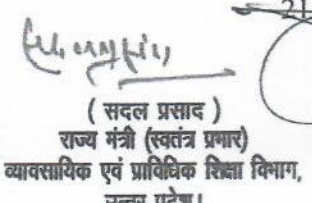 21
( सदल प्रसाद )
राज्य मंत्री (स्वतंत्र प्रभार)
व्यावसायिक एवं प्राविधिक शिक्षा विभाग,
उत्तर प्रदेश।